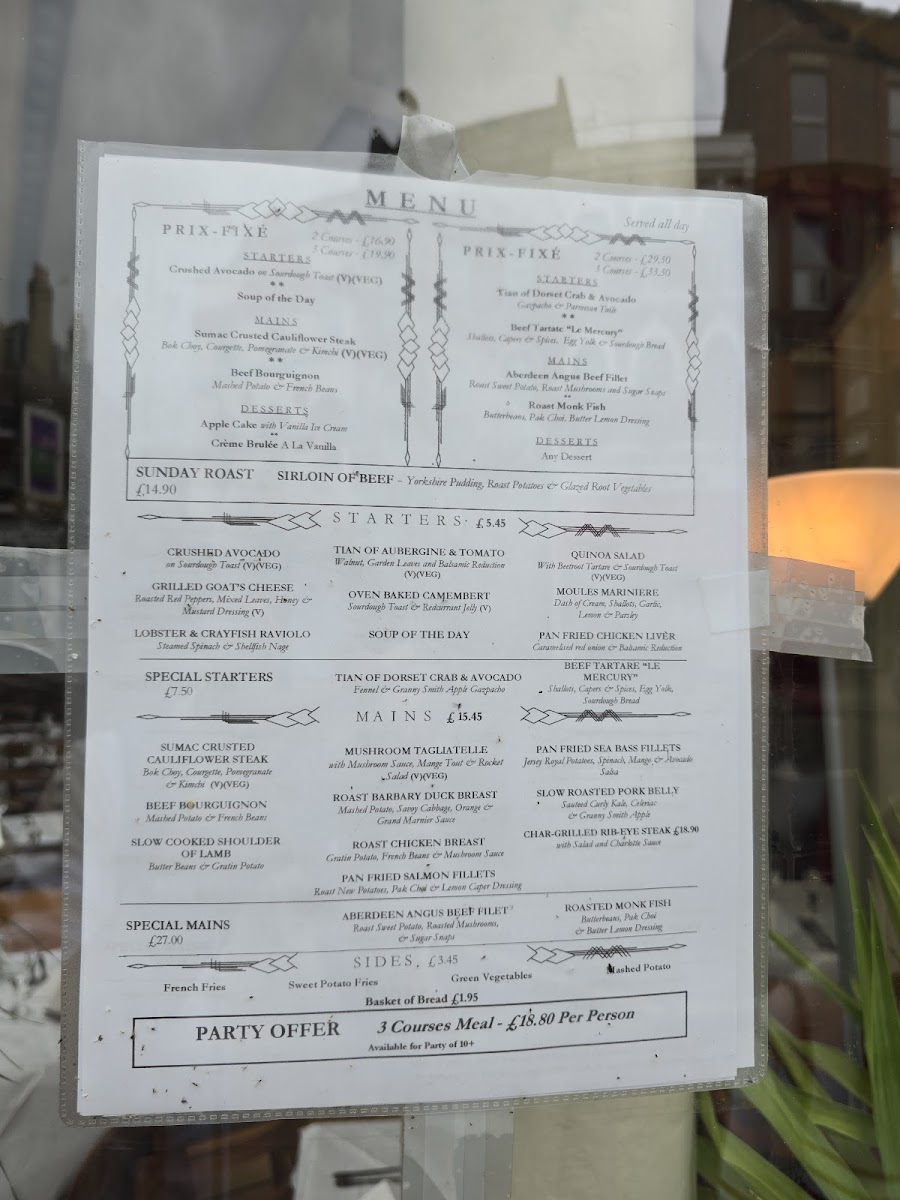 MENU
Served all day
PRIX-FIXÉ
2 Courses - £16.90
3 Courses - £19.90
STARTERS
Crushed Avocado on Sourdough Toast (V)(VEG)
**
Soup of the Day
MAINS
Sumac Crusted Cauliflower Steak
Bok Choy, Courgette, Pomegranate & Kimchi (V)(VEG)
**
Beef Bourguignon
Mashed Potato & French Beans
DESSERTS
Apple Cake with Vanilla Ice Cream
**
Crème Brulée A La Vanilla
PRIX-FIXÉ
2 Courses - £29.50
3 Courses - £33.50
STARTERS
Tian of Dorset Crab & Avocado
Gazpacho & Parmesan Tuile
**
Beef Tartate "Le Mercury"
Shallots, Capers & Spices, Egg Yolk & Sourdough Bread
MAINS
Aberdeen Angus Beef Fillet
Roast Sweet Potato, Roast Mushrooms and Sugar Snaps
**
Roast Monk Fish
Butterbeans, Pak Choi, Butter Lemon Dressing
DESSERTS
Any Dessert
SUNDAY ROAST SIRLOIN OF BEEF - Yorkshire Pudding, Roast Potatoes & Glazed Root Vegetables
£14.90
STARTERS £5.45
CRUSHED AVOCADO
on Sourdough Toast (V)(VEG)
GRILLED GOAT'S CHEESE
Roasted Red Peppers, Mixed Leaves, Honey &
Mustard Dressing (V)
LOBSTER & CRAYFISH RAVIOLO
Steamed Spinach & Shellfish Nage
TIAN OF AUBERGINE & TOMATO
Walnut, Garden Leaves and Balsamic Reduction
(V)(VEG)
OVEN BAKED CAMEMBERT
Sourdough Toast & Redcurrant Jelly (V)
SOUP OF THE DAY
QUINOA SALAD
With Beetroot Tartare & Sourdough Toast
(V)(VEG)
MOULES MARINIERE
Dash of Cream, Shallots, Garlic,
Lemon & Parsley
PAN FRIED CHICKEN LIVER
Caramelised red onion & Balsamic Reduction
SPECIAL STARTERS
£7.50
TIAN OF DORSET CRAB & AVOCADO
Fennel & Granny Smith Apple Gazpacho
BEEF TARTARE "LE
MERCURY"
Shallots, Capers & Spices, Egg Yolk,
Sourdough Bread
MAINS £15.45
SUMAC CRUSTED
CAULIFLOWER STEAK
Bok Choy, Courgette, Pomegranate
& Kimchi (V)(VEG)
BEEF BOURGUIGNON
Mashed Potato & French Beans
SLOW COOKED SHOULDER
OF LAMB
Butter Beans & Gratin Potato
MUSHROOM TAGLIATELLE
with Mushroom Sauce, Mange Tout & Rocket
Salad (V)(VEG)
ROAST BARBARY DUCK BREAST
Mashed Potato, Savoy Cabbage, Orange &
Grand Marnier Sauce
ROAST CHICKEN BREAST
Gratin Potato, French Beans & Mushroom Sauce
PAN FRIED SALMON FILLETS
Roast New Potatoes, Pak Choi & Lemon Caper Dressing
PAN FRIED SEA BASS FILLETS
Jersey Royal Potatoes, Spinach, Mango & Avocado
Salsa
SLOW ROASTED PORK BELLY
Sauteed Curly Kale, Celeriac
& Granny Smith Apple
CHAR-GRILLED RIB-EYE STEAK £18.90
with Salad and Charlotte Sauce
SPECIAL MAINS
£27.00
ABERDEEN ANGUS BEEF FILET
Roast Sweet Potato, Roasted Mushrooms,
& Sugar Snaps
ROASTED MONK FISH
Butterbeans, Pak Choi
& Butter Lemon Dressing
SIDES, £3.45
French Fries
Sweet Potato Fries
Green Vegetables
Mashed Potato
Basket of Bread £1.95
PARTY OFFER 3 Courses Meal - £18.80 Per Person
Available for Party of 10+